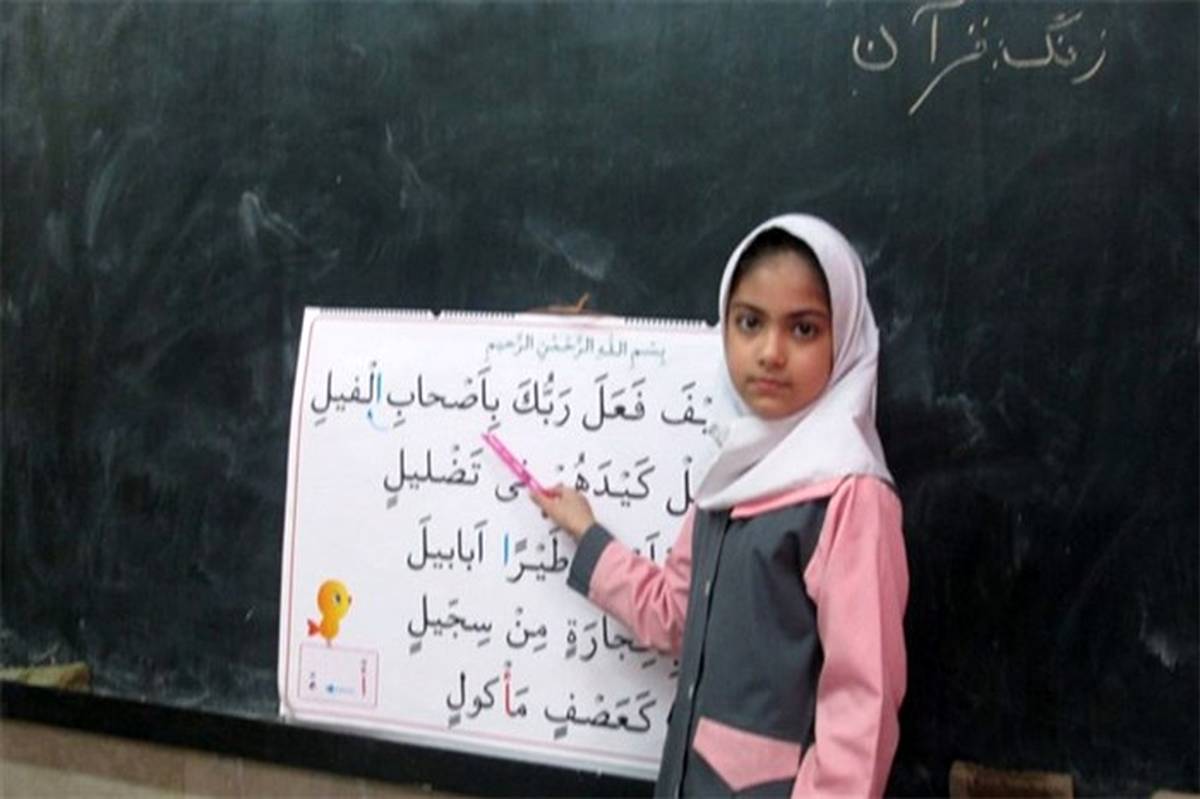 زنگ قرآن
بِسْمِ اللهِ الرَّحْمٰنِ الرَّحیمِ
یْفَ فَعَلَ رَبُّكَ بِاَصْحابِ الْفیلِ
لْ كَیْدَهُمْ فی تَضْلیلٍ
طَیْرًا اَبابیلَ
حِجارَةٍ مِنْ سِجّیلٍ
كَعَصْفٍ مَأْكولٍ
أ